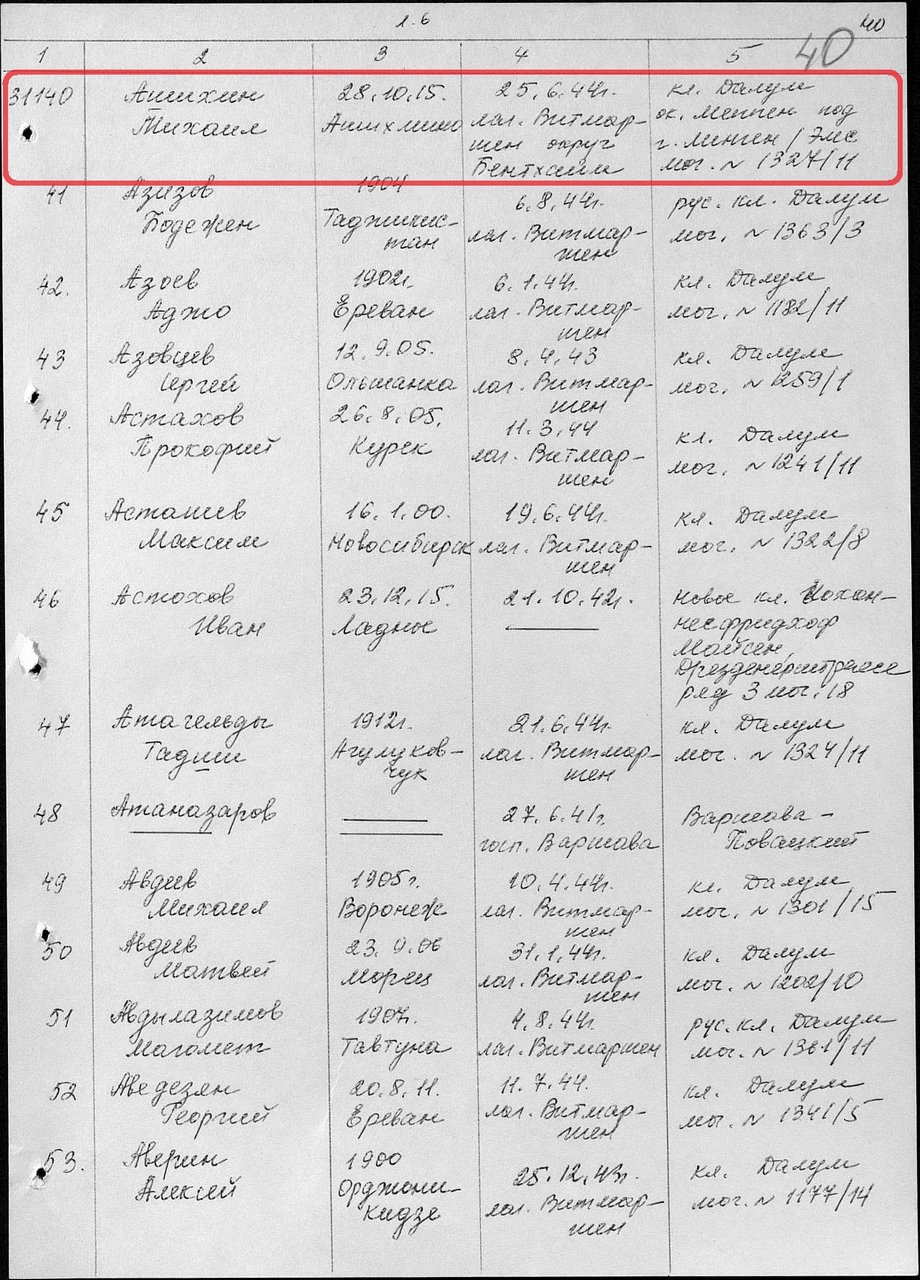 1.6
40
40
1 2 3 4 5
31140 Анихин 28.10.15. 25.6.44г. кл. Далум
Михаил лаг. Витмар- ок. Меппен под
шен округ г. Линген / Эмс
Бентхайм мог. N 1327/11
41 Азизов 1904 6.8.44г. рус. кл. Далум
Бодежен Таджикис- лаг. Витмар- мог. N 1363/3
тан шен
42. Азоев 1902г. 6.1.44г. кл. Далум
Аджо Ереван лаг. Витмар- мог. N 1182/11
шен
43 Азовцев 12.9.05. 8.4.43 кл. Далум
Сергей Ольшанка лаг. Витмар- мог. N 1259/1
шен
44. Астахов 26.8.05. 11.3.44 кл. Далум
Прокофий Курск лаг. Витмар- мог. N 1241/11
шен
45 Асташев 16.1.00. 19.6.44г. кл. Далум
Максим Новосибирск лаг. Витмар- мог. N 1322/8
шен
46 Астохов 23.12.15. 21.10.42г. Новое кл. Иохан-
Иван Ладное несфридхоф
Майсен,
Дрезденерштрассе
ряд 3 мог. 18
47 Атагельды 1912г. 21.6.44г. кл. Далум
Тадши Агулуков- лаг. Витмар- мог. N 1324/11
чук шен
48 Атаназаров 27.6.41г. Варшава -
госп. Варшава Повацкий
49 Авдеев 1905г. 10.4.44г. кл. Далум
Михаил Воронеж лаг. Витмар- мог. N 1301/15
шен
50 Авдеев 23.9.06 31.1.44г. кл. Далум
Матвей Морец лаг. Витмар- мог. N 1202/10
шен
51 Авдылазимов 1907. 4.8.44г. рус. кл. Далум
Магомет Тавтуна лаг. Витмаршен мог. N 1361/11
52 Аведезян 20.8.11. 11.7.44. кл. Далум
Георгий Ереван лаг. Витмар- мог. N 1341/5
шен
53. Аверин 1900 25.12.43г. кл. Далум
Алексей Орджони- лаг. Витмар- мог. N 1177/14
кидзе шен